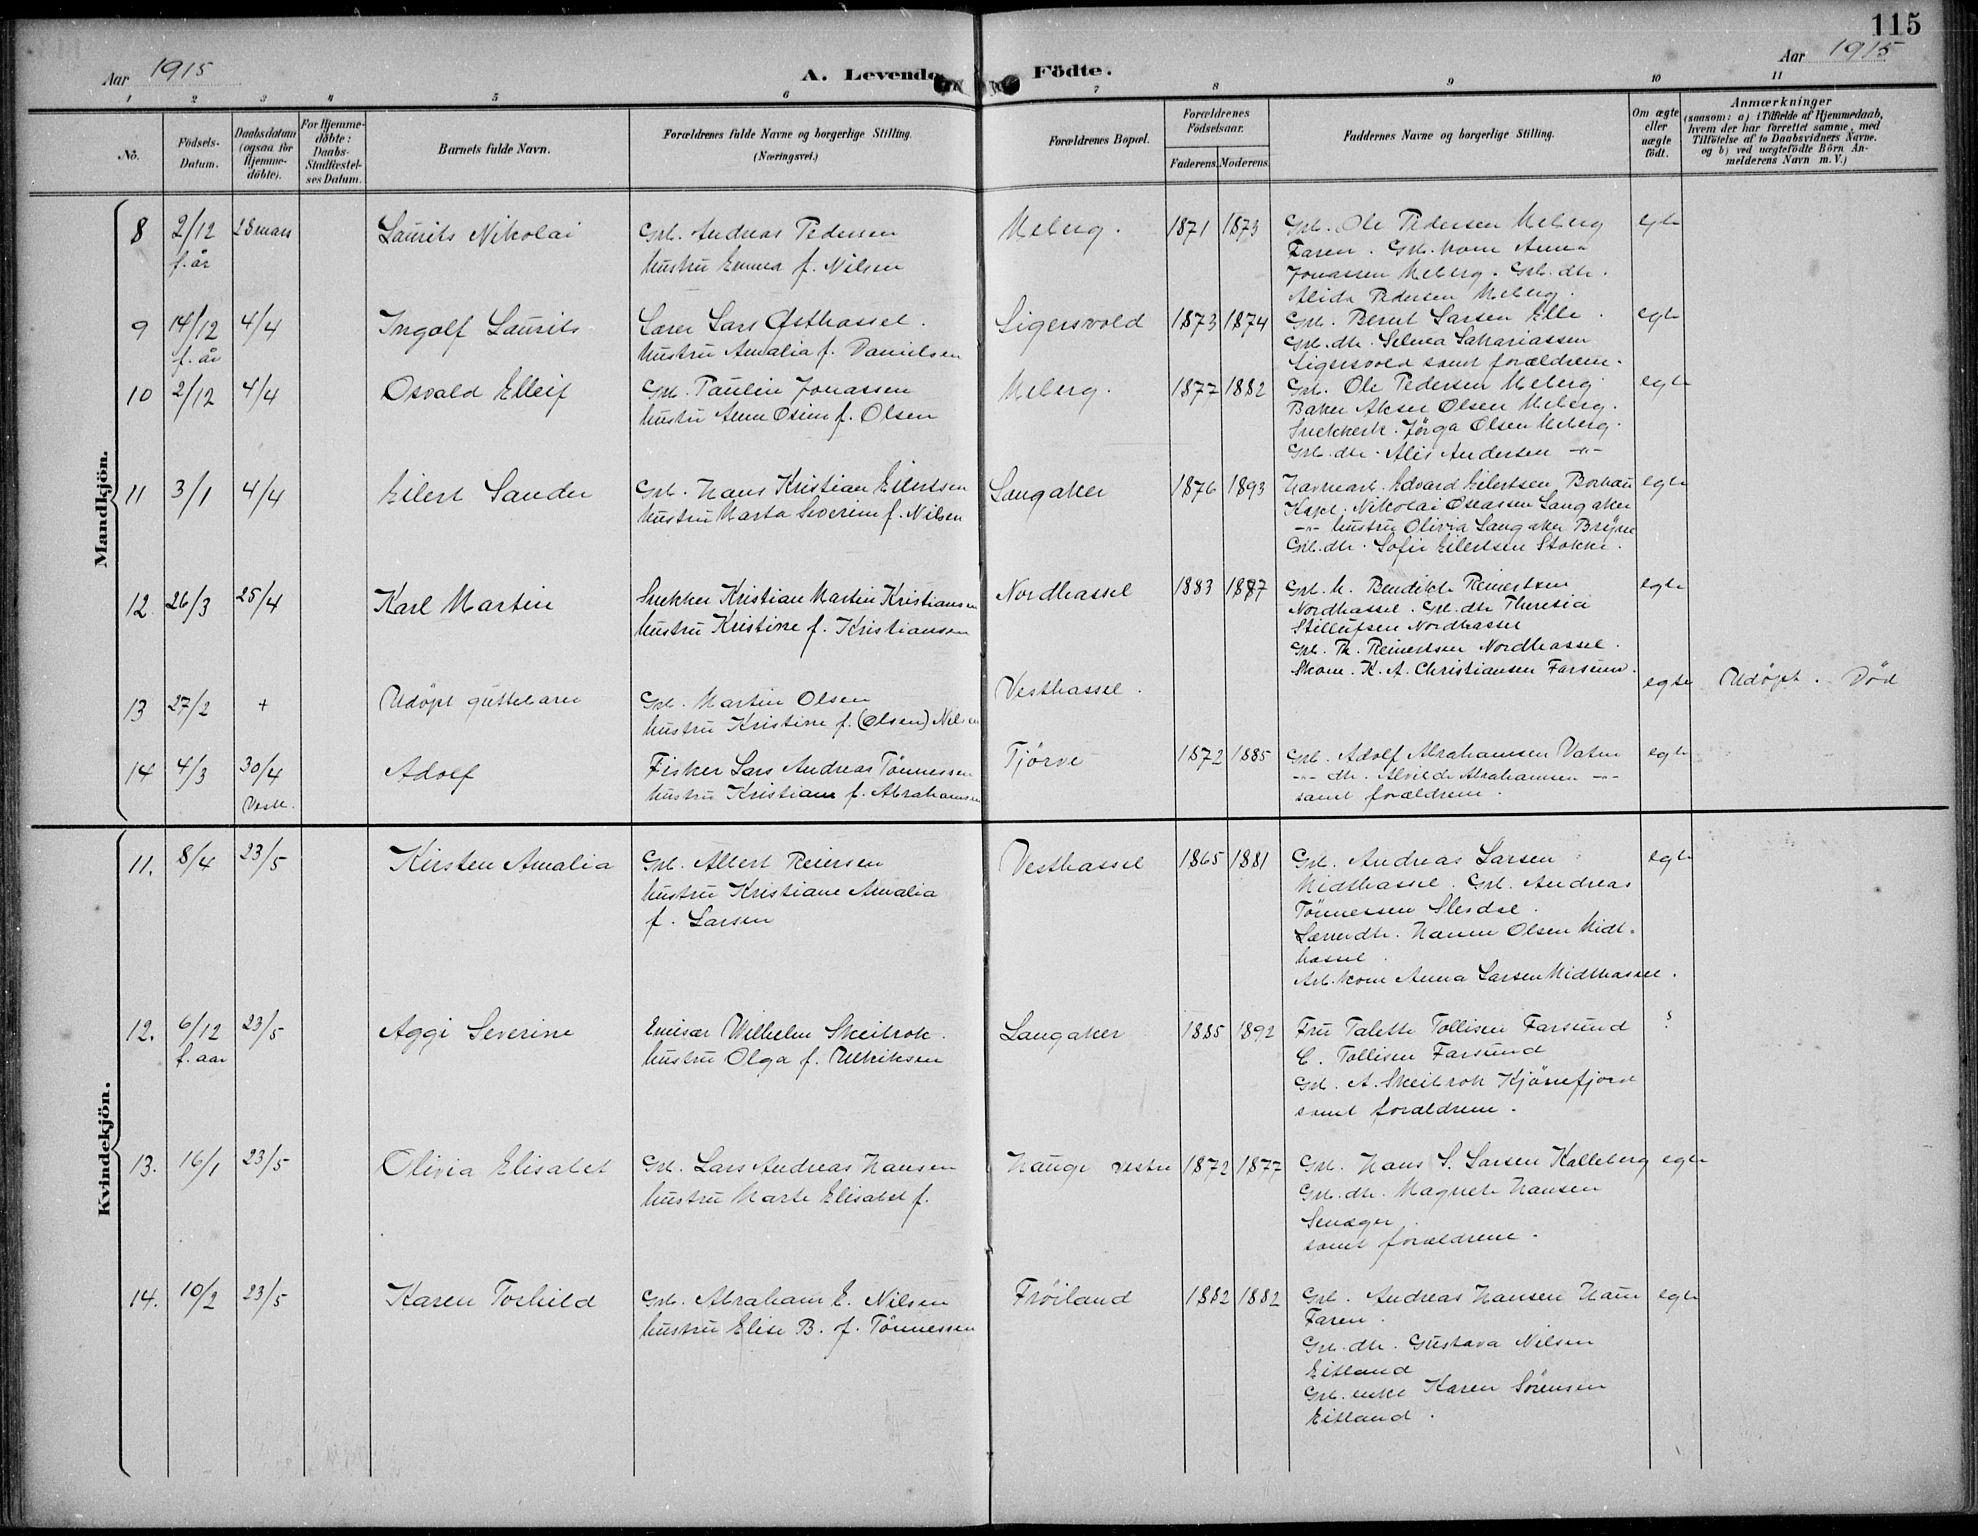 115
Aar 1915
A. Levende Födte.
Aar 1915
1 2 3 4 5 6 7 8 9 10 11
No.
Födsels-Datum.
Daabsdatum (ogsaa for Hjemme-döbte).
For Hjemme-döbte: Daabs-Stadfæstel-ses Datum.
Barnets fulde Navn.
Forældrenes fulde Navne og borgerlige Stilling.
(Næringsvei.)
Forældrenes Bopæl.
Forældrenes Födselsaar.
Faderens. Moderens.
Faddernes Navne og borgerlige Stilling.
Om ægte eller uægte födt.
Anmærkninger
(saasom: a) i Tilfælde af Hjemmedaab, hvem der har forrettet samme, med Tilföielse af to Daabsvidners Navne. og b) ved uægtefödte Börn An-melderens Navn m. V.)
Mandkjön.
8 2/12 f. år 28 mars Laurits Nikolai
Grb. Andreas Pedersen
hustru Emma f. Nilsen
Meberg. 1871 1873
Grb. Ole Pedersen Meberg
Faren. Grb. kone Anna
Jonassen Meberg. Grb. dtr.
Alida Pedersen Meberg.
egte
9 14/12 f. år 4/4 Ingolf Laurits
Lærer Lars Østhassel.
hustru Amalia f. Danielsen
Sigersvold 1873 1874
Grb. Bernt Larsen Elle.
Grb. dtr. Selma Sakariassen
Sigersvold samt forældrene.
egte
10 2/12 4/4 Osvald Elleif
Grb. Paulin Jonassen
hustru Anne Osine f. Olsen
Meberg. 1877 1882
Grb. Ole Pedersen Meberg.
Baker Aksel Olsen Meberg.
Snekkerk. Jørga Olsen Meberg.
Grb. dtr. Alis Andersen -"-
egte
11 3/1 4/4 Eilert Sander
Grb. Hans Kristian Eilertsen
hustru Marta Severine f. Nilsen
Langaker 1876 1893
Havnearb. Edvard Eilertsen Borhau
Kapt. Nikolai Oseassen Langaker
-"- hustru Olivia Langaker Bryne
Grb. dtr. Sofie Eilertsen Stokke.
egte
12 26/3 25/4 Karl Martin
Snekker Kristian Martin Kristiansen
hustru Kristine f. Kristiansen
Nordhassel 1883 1887
Grb. k. Bendikte Reinertsen
Nordhassel. Grb. dtr. Theresia
Stillufsen Nordhassel
Grb. R. Reinertsen Nordhassel.
Skom. K. A. Christiansen Farsund.
egte
13 27/2 + Udøpt guttebarn
Grb. Martin Olsen
hustru Kristine f. (Olsen) Nilsen
Vesthassel.
egte Udøpt. Død
14 4/3 30/4 Adolf
Fisker Lars Andreas Tønnessen
hustru Kristiane f. Abrahamsen
Tjørve 1872 1885
Grb. Adolf Abrahamsen Vatne
-"- dtr. Alvilde Abrahamsen -"-
samt forældrene.
egte
Kvindekjön.
11. 8/4 23/5 Kirsten Amalia
Grb. Albert Reiersen
hustru Kristiane Amalia
f. Larsen
Vesthassel 1865 1881
Grb. Andreas Larsen
Midthassel. Grb. Andreas
Tönnessen Slesdal.
Lærerdtr. Hanna Olsen Midt-
hassel.
Arb. kone Anna Larsen Midthassel.
egte
12. 6/12 f. aar 23/5 Aggi Severine
Emisær Wilhelm Skeibrok.
hustru Olga f. Ulriksen
Langaker 1885 1892
Fru Talette Tollisen Farsund
C. Tollisen Farsund
Grb. A. Skeibrok Kjørrefjord
samt forældrene.
?
13. 16/1 23/5 Olivia Elisabet
Grb. Lars Andreas Hansen
hustru Marte Elisabet f.
Hauge vestre 1872 1877
Grb. Hans S. Larsen Kalleberg
Grb. dtr. Magnete Hansen
samt forældrene.
egte
14. 10/2 23/5 Karen Torhild
Grb. Abraham E. Nilsen
hustru Elise B. f. Tønnessen
Frøiland 1882 1882
Grb. Andreas Hansen Haue
Faren.
Grb. dtr. Gustava Nilsen
Eitland
Grb. enke Karen Sörensen
Eitland.
egte